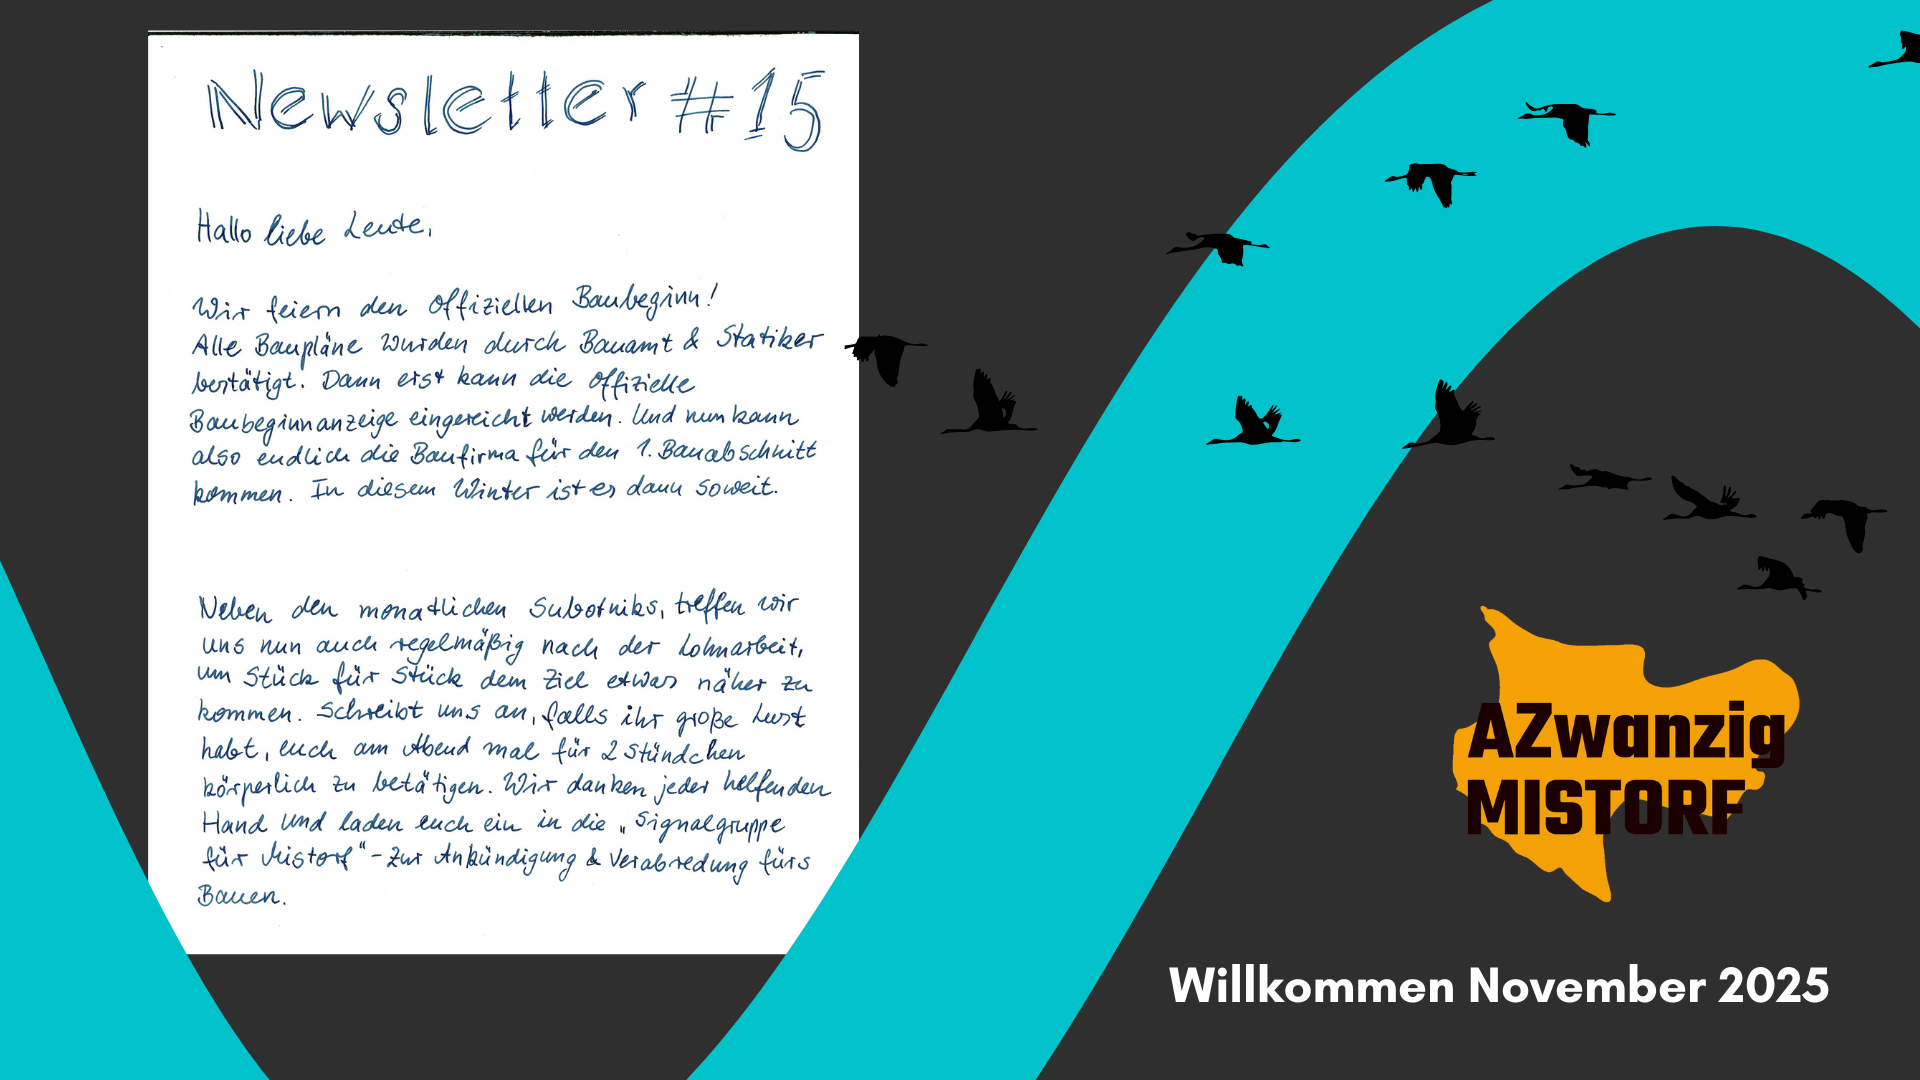 Newsletter #15
Hallo liebe Leute,
Wir feiern den offiziellen Baubeginn!
Alle Baupläne wurden durch Bauamt & Statiker
bestätigt. Dann erst kann die offizielle
Baubeginnanzeige eingereicht werden. Und nun kann
also endlich die Baufirma für den 1. Bauabschnitt
kommen. In diesem Winter ist es dann soweit.
Neben den monatlichen Subotniks, treffen wir
uns nun auch regelmäßig nach der Lohnarbeit,
um Stück für Stück dem Ziel etwas näher zu
kommen. Schreibt uns an, falls ihr große Lust
habt, euch am Abend mal für 2 Stündchen
körperlich zu betätigen. Wir danken jeder helfenden
Hand und laden euch ein in die „Signalgruppe
für Mistorf" - Zur Ankündigung & Verabredung fürs
Bauen.
AZwanzig
MISTORF
Willkommen November 2025